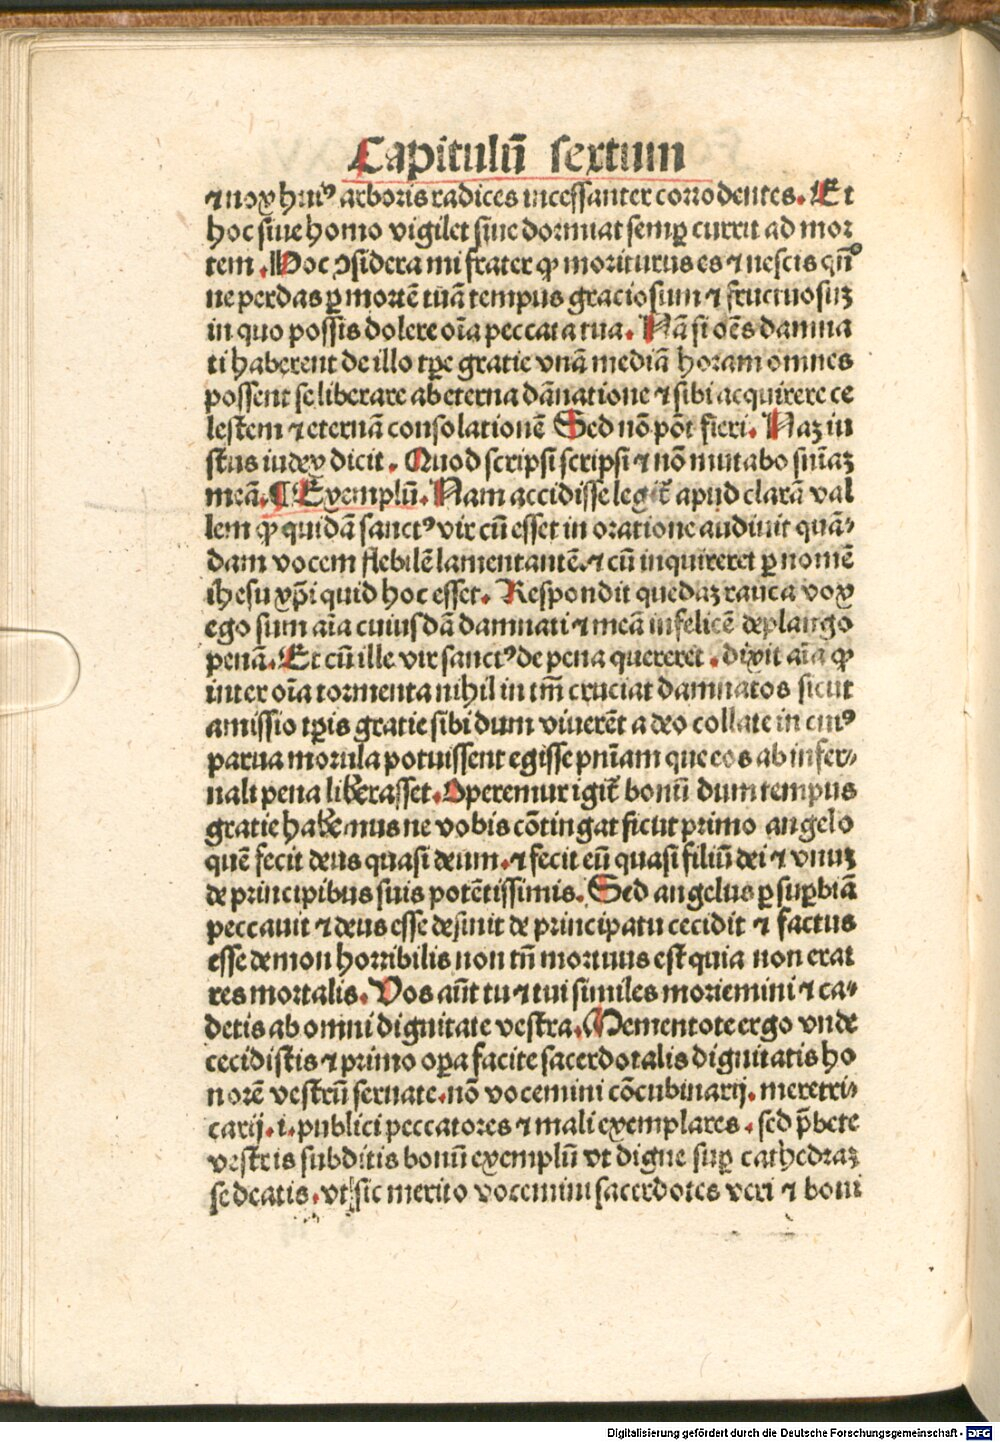 Capitulū sextum
⁊ nox huiꝰ arboris radices incessanter corrodentes. Et
hoc siue homo vigilet siue dormiat semꝑ currit ad mor
tem. Hoc ↄsidera mi frater ꝙ moriturus es ⁊ nescis qn̄
ne perdas ꝑ mortē tuā tempus graciosum ⁊ fructuosuꝫ
in quo possis dolere oīa peccata tua. Nā si oēs damna
ti haberent de illo tꝑe gratie vnā mediā horam omnes
possent se liberare ab eterna dānatione ⁊ sibi acquirere ce
lestem ⁊ eternā consolationē Sed nō pōt fieri. Naꝫ iu
stus iudex dicit. Quod scripsi scripsi ⁊ nō mutabo sn̄iaꝫ
meā. ¶ Exemplū. Nam accidisse legit̄ apud clarā val
lem ꝙ quidā sanctꝰ vir cū esset in oratione audiuit quā⸗
dam vocem flebilē lamentantē. ⁊ cū inquireret ꝑ nomē
ihesu xp̄i quid hoc esset. Respondit quedaꝫ rauca vox
ego sum aīa cuiusdā damnati ⁊ meā infelicē deplango
penā. Et cū ille vir sanctꝰ de pena quereret. dixit aīa ꝙ
inter oīa tormenta nihil in tm̄ cruciat damnatos sicut
amissio tꝑis gratie sibi dum viuerēt a deo collate in cuiꝰ
parua morula potuissent egisse pn̄iam que eos ab infer⸗
nali pena liberasset. Operemur igit̄ bonū dum tempus
gratie habemus ne vobis cōtingat sicut primo angelo
quē fecit deus quasi deum. ⁊ fecit eū quasi filiū dei ⁊ vnuꝫ
de principibus suis potētissimis. Sed angelus ꝑ suꝑbiā
peccauit ⁊ deus esse desinit de principatu cecidit ⁊ factus
esse demon horribilis non tn̄ mortuus est quia non erat
res mortalis. Vos aūt tu ⁊ tui similes moriemini ⁊ ca⸗
detis ab omni dignitate vestra. Mementote ergo vnde
cecidistis ⁊ primo oꝑa facite sacerdotalis dignitatis ho
norē vestrū seruate. nō vocemini cōcubinarij. meretri⸗
carij. i. publici peccatores ⁊ mali exemplares. sed p̄bete
vestris subditis bonū exemplū vt digne suꝑ cathedraꝫ
sedeatis. vt sic merito vocemini sacerdotes veri ⁊ boni
Digitalisierung gefördert durch die Deutsche Forschungsgemeinschaft - DFG